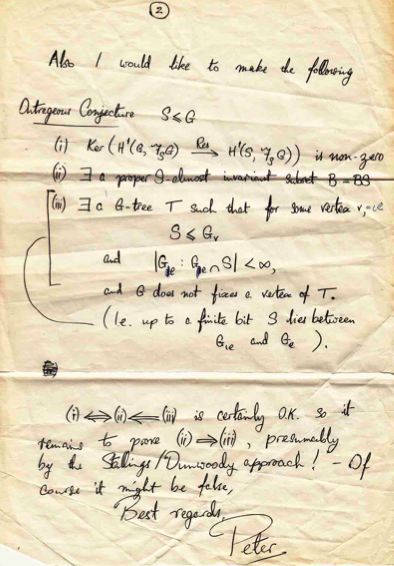 2
Also I would like to make the following
Outrageous Conjecture S ≤ G
(i) Ker (H¹(G, 𝓕ₛG) →Res H¹(S, 𝓕ₛG)) is non-zero
(ii) ∃ a proper S-almost invariant subset B = BS
(iii) ∃ a G-tree T such that for some vertex v,
S ≤ Gᵥ
and |Gₑ : Gₑ ∩ S| < ∞,
and G does not fixes a vertex of T.
(Ie. up to a finite bit S lies between
and Gₑ ).
(i) ⟺ (ii) ⟸ (iii) is certainly O.K. so it
remains to prove (ii) ⟹ (iii), presumably
by the Stallings/Dunwoody approach! – Of
course it might be false,
Best regards,
Peter